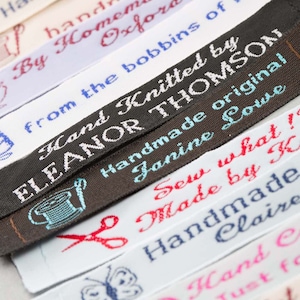 handm
By Homema
Oxford
from the bobbins of
Hand Knitted by
ELEANOR THOMSON
Handmade original
Janine Lowe
Sew what !
Made by K
Handmade
Claire
Hand
Just fo